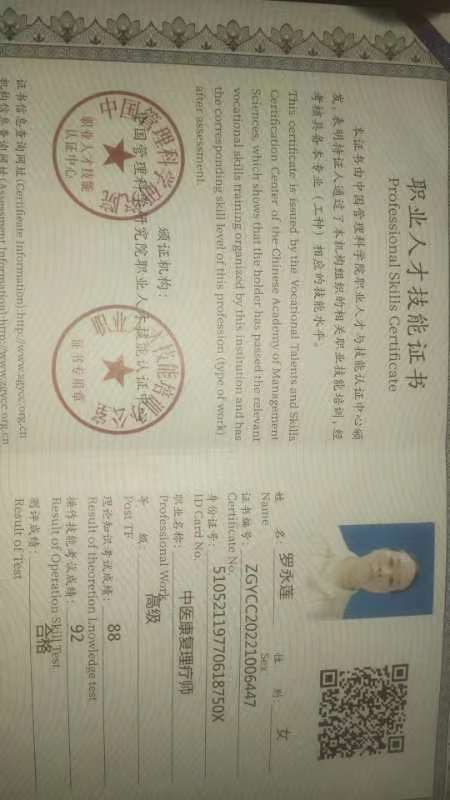 职业人才技能证书
Professional Skills Certificate
本证书由中国管理科学院职业人才与技能认证中心颁
发，表明持证人通过了本机构组织的相关职业技能培训，经
考核具备本专业（工种）相应的技能水平。
This certificate is issued by the Vocational Talents and Skills
Certification Center of the Chinese Academy of Management
Sciences, which shows that the holder has passed the relevant
vocational skills training organized by this institution and has
the corresponding skill level of this profession (type of work)
after assessment.
颁证机构：
中国管理科学研究院职业人才技能认证中心
职业人才技能
认证中心
证书专用章
证书信息查询网址(Certificate Information):http://www.zgycc.org.cn
机构信息备查网址(Assessment Information):http://www.zgycc.org.cn
姓 名 罗永莲 性 别 女
Name Sex
证书编号： ZGYCC20221006447
Certificate No.
身份证号： 51052119770618750X
ID Card No.
职业名称： 中医康复理疗师
Professional Work
等 级 高级
Post TF
理论知识考试成绩： 88
Result of theoretion Lnowledge test
操作技能考试成绩： 92
Result of Operation Skill Test
测评成绩： 合格
Result of Test